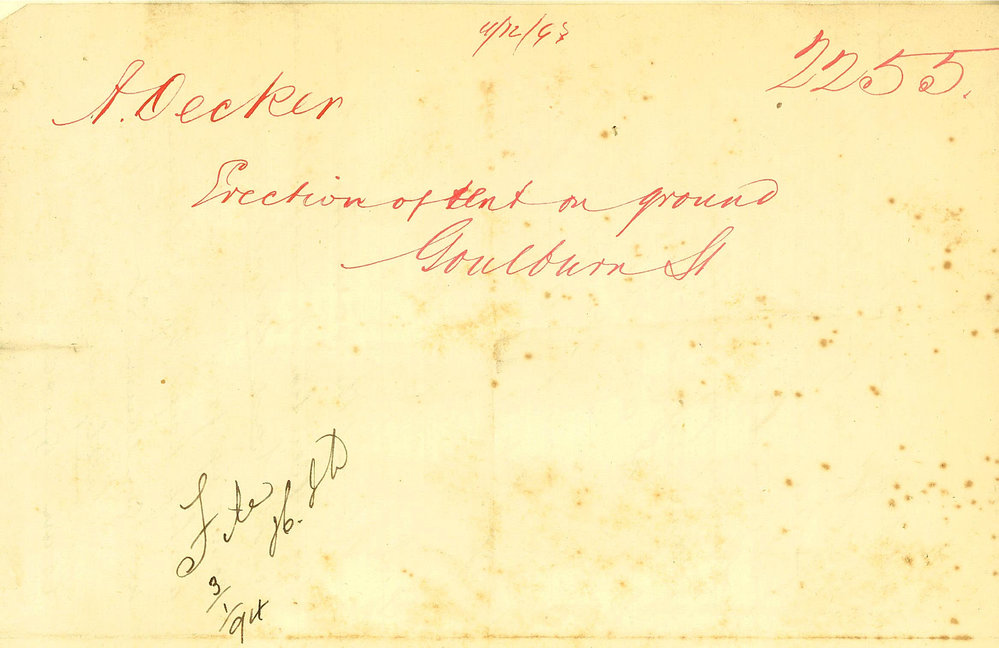 4/12/93
2255.
A. Decker
Erection of tent on ground
Goulburn St
File
3/1/94